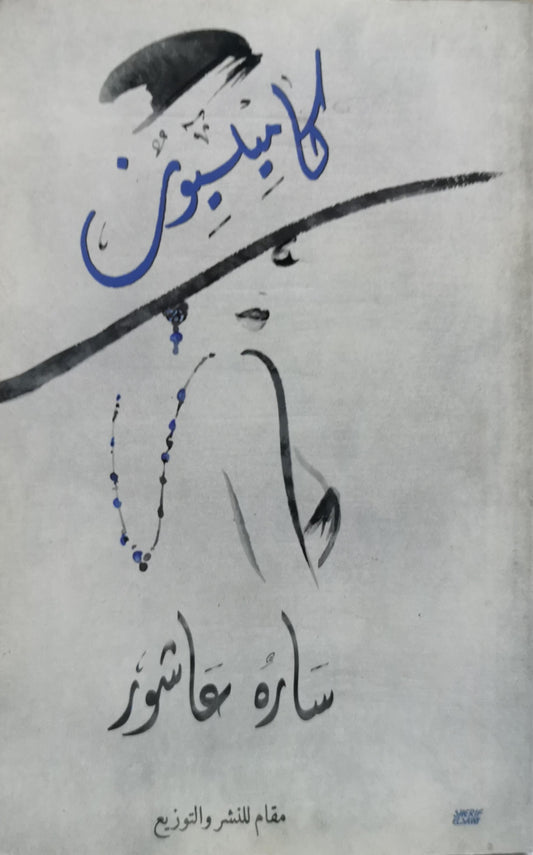 كاميليون
سَاره عَاشور
مقام للنشر والتوزيع
SHERIF